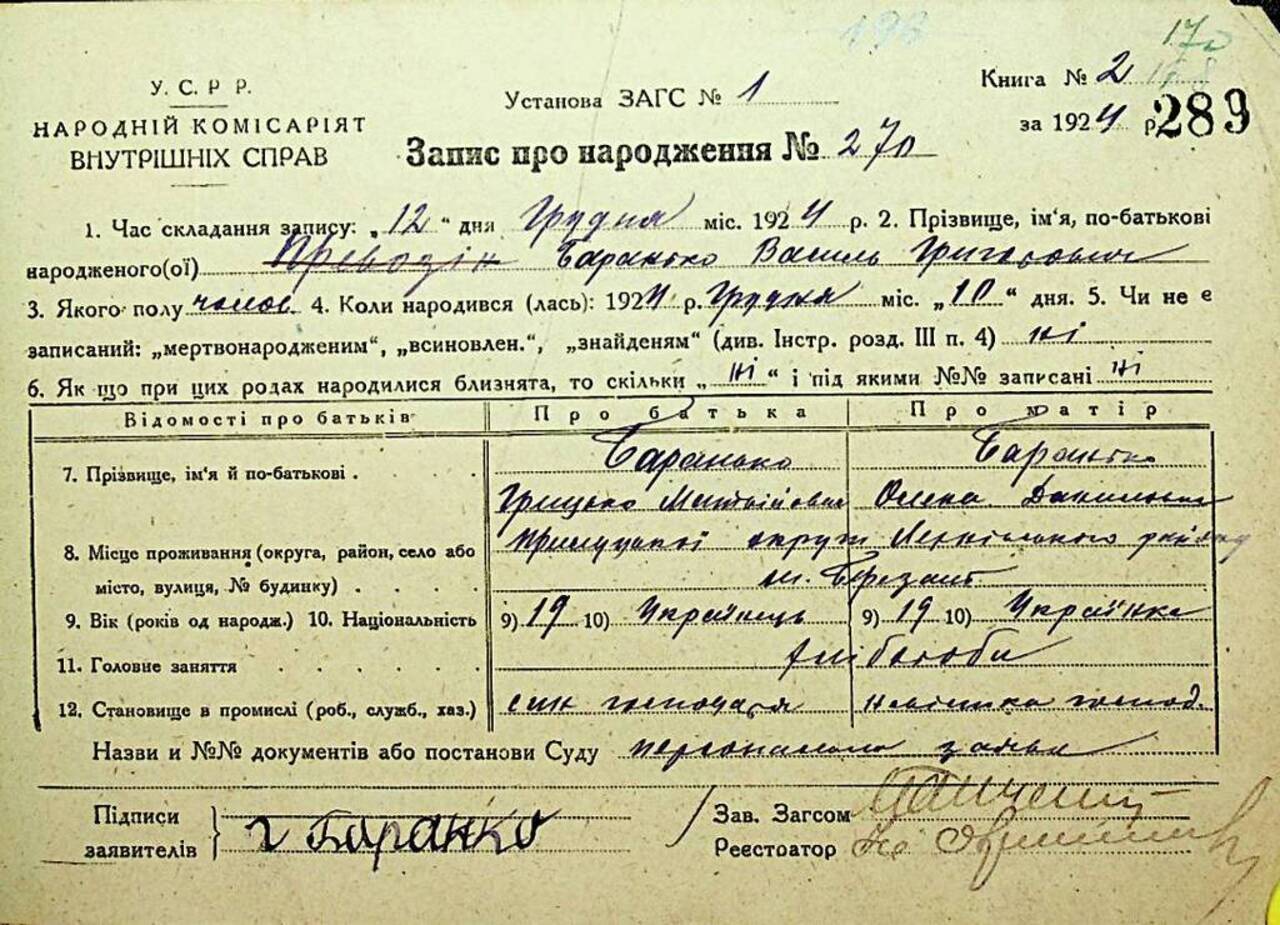 170
У. С. Р Р.
НАРОДНІЙ КОМІСАРІЯТ
ВНУТРІШНІХ СПРАВ
Установа ЗАГС № 1
Книга № 2
за 1924 р.
289
Запис про народження № 270
1. Час складання запису: „12“ дня Грудня міс. 1924 р. 2. Прізвище, ім'я, по-батькові
народженого(ої) Баранько Василь Григорович
3. Якого полу чолов. 4. Коли народився (лась): 1924 р. Грудня міс. „10“ дня. 5. Чи не є
записаний: „мертвонародженим“, „всиновлен.“, „знайденям“ (див. Інстр. розд. III п. 4) ні
6. Як що при цих родах народилися близнята, то скільки „ні“ і під якими №№ записані ні
Відомості про батьків Про батька Про матір
7. Прізвище, ім'я й по-батькові . Баранько Баранько
Грицько Матвійович Олена Данилівна
8. Місце проживання (округа, район, село або Прилуцької округи району
місто, вулиця, № будинку) . . . . м. Березань
9. Вік (років од народж.) 10. Національність 9) 19 10) Українець 9) 19 10) Українка
11. Головне заняття . . . . . . хлібороби
12. Становище в промислі (роб., служб., хаз.) син господаря невістка господ.
Назви и №№ документів або постанови Суду персональна заява
Підписи
заявителів Г Баранко
Зав. Загсом
Реєстратор